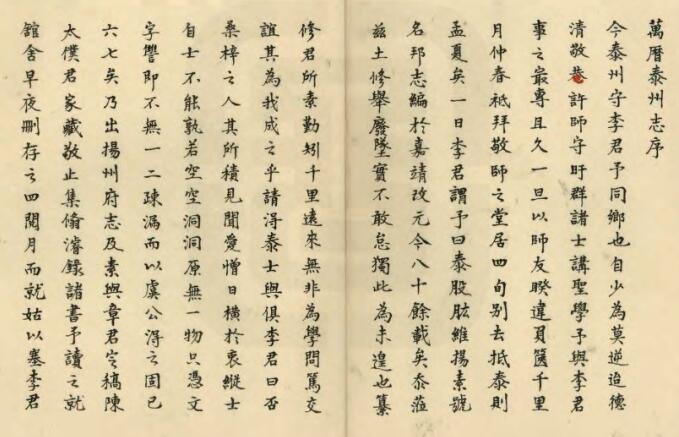 萬曆泰州志序
今泰州守李君予同鄉也自少為莫逆迨德
清敬菴許師守盱群諸士講聖學予與李君
事之最專且久一旦以師友睽違負篋千里
月仲春祗拜敬師之堂居四旬别去抵泰則
孟夏矣一日李君謂予曰泰股肱維揚素號
名邦志編於嘉靖改元今八十餘載矣忝蒞
兹土修舉廢墜實不敢怠獨此為未遑也纂
修君所素勤矧千里遠來無非為學問篤交
誼其為我成之乎請得泰士與俱李君曰否
桑梓之人其所積見聞愛憎日橫於衷縱士
自士不能孰若空空洞洞原無一物只憑文
字讐即不無一二疎漏而以虞公得之固已
六七矣乃出揚州府志及素與章君定稿陳
太僕君家藏敬止集脩濬錄諸書予讀之就
舘舍早夜刪存之四閱月而就姑以塞李君